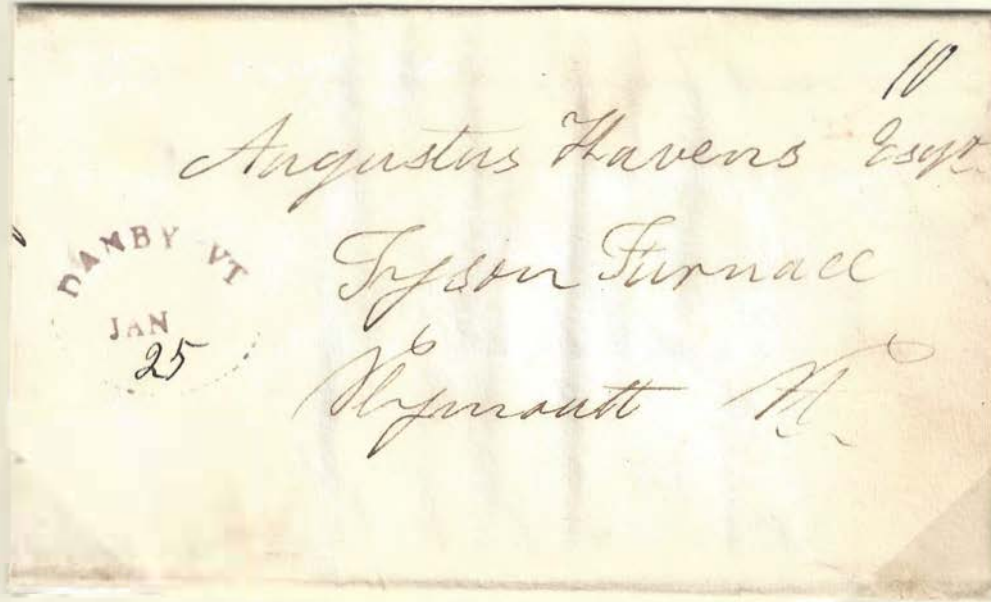 10
Augustus Havens Esqr.
Tyson Furnace
Plymouth Vt.
DANBY VT
JAN
25